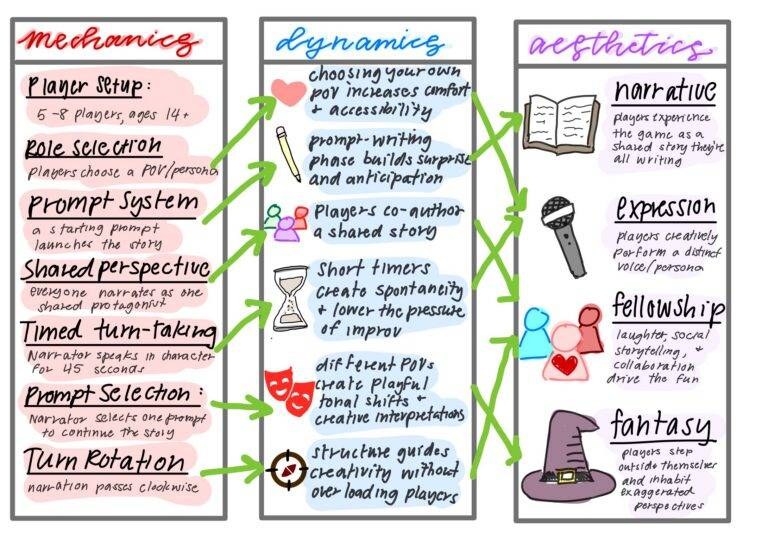 mechanics
Player Setup:
5-8 players, ages 14+
Role Selection
players choose a POV/persona
Prompt System
a starting prompt
launches the story
Shared perspective
everyone narrates as one
shared protagonist
Timed turn-taking
Narrator speaks in character
for 45 seconds
Prompt Selection:
Narrator selects one prompt
to continue the story
Turn Rotation
narration passes clockwise
dynamics
choosing your own
POV increases comfort
+ accessibility
prompt-writing
phase builds surprise
and anticipation
Players co-author
a shared story
Short timers
create spontaneity
+ lower the pressure
of improv
different POVs
create playful
tonal shifts +
creative interpretations
structure guides
creativity without
overloading players
aesthetics
narrative
players experience
the game as a
shared story they're
all writing
expression
players creatively
perform a distinct
voice/persona
fellowship
laughter, social
storytelling, +
collaboration
drive the fun
fantasy
players step
outside themselves
and inhabit
exaggerated
perspectives